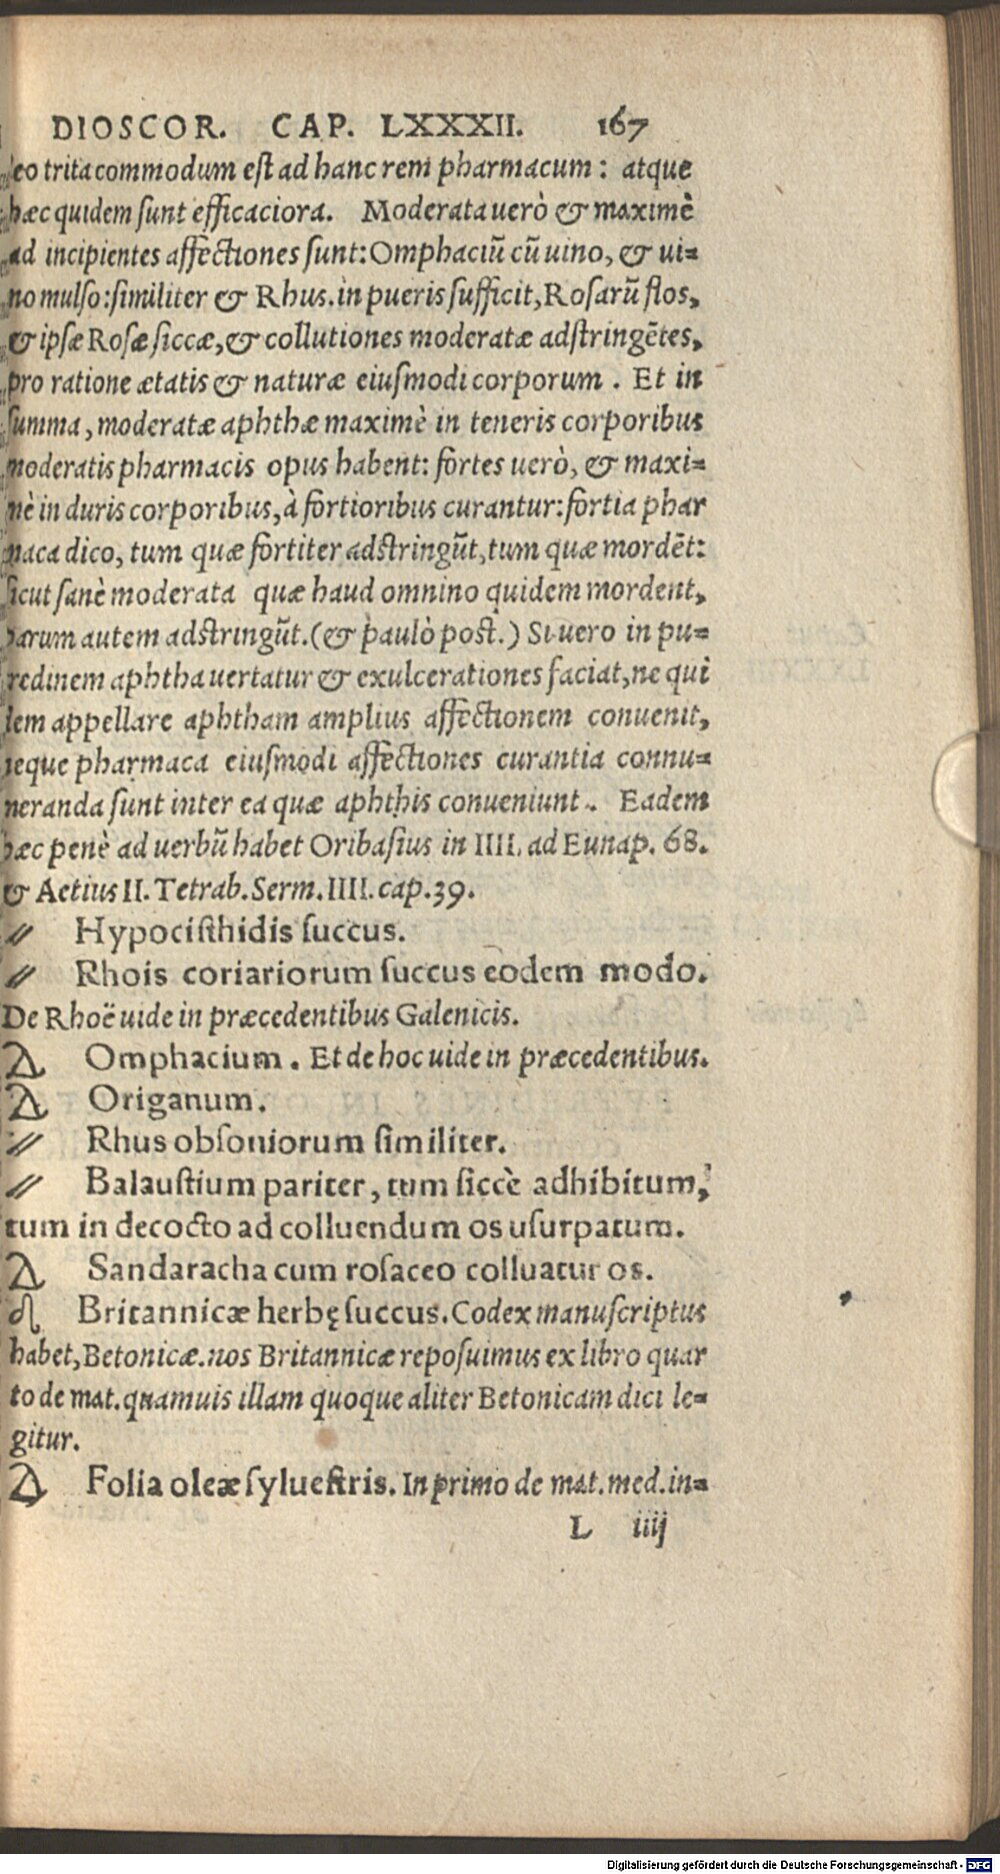 DIOSCOR. CAP. LXXXII. 167
eo trita commodum est ad hanc rem pharmacum: atque
hæc quidem sunt efficaciora. Moderata uerò & maximè
ad incipientes affectiones sunt: Omphaciũ cũ uino, & ui=
no mulso: similiter & Rhus. in pueris sufficit, Rosarũ flos,
& ipsæ Rosæ siccæ, & collutiones moderatæ adstringẽtes,
pro ratione ætatis & naturæ eiusmodi corporum. Et in
summa, moderatæ aphthæ maximè in teneris corporibus
moderatis pharmacis opus habent: fortes uerò, & maxi=
mè in duris corporibus, à fortioribus curantur: fortia phar
maca dico, tum quæ fortiter adstringũt, tum quæ mordẽt:
sicut sanè moderata quæ haud omnino quidem mordent,
parum autem adstringũt. (& paulò post.) Si uero in pu=
redinem aphtha uertatur & exulcerationes faciat, ne qui
dem appellare aphtham amplius affectionem conuenit,
neque pharmaca eiusmodi affectiones curantia connu=
neranda sunt inter ea quæ aphthis conueniunt. Eadem
hæc penè ad uerbũ habet Oribasius in IIII. ad Eunap. 68.
& Aetius II. Tetrab. Serm. IIII. cap. 39.
〃 Hypocisthidis succus.
〃 Rhois coriariorum succus eodem modo.
De Rhoë uide in præcedentibus Galenicis.
Δ Omphacium. Et de hoc uide in præcedentibus.
Δ Origanum.
〃 Rhus obsoniorum similiter.
〃 Balaustium pariter, tum siccè adhibitum,
tum in decocto ad colluendum os usurpatum.
Δ Sandaracha cum rosaceo colluatur os.
♌ Britannicæ herbę succus. Codex manuscriptus
habet, Betonicæ. nos Britannicæ reposuimus ex libro quar
to de mat. quamuis illam quoque aliter Betonicam dici le=
gitur.
Δ Folia oleæ syluestris. In primo de mat. med. in=
L iiij
Digitalisierung gefördert durch die Deutsche Forschungsgemeinschaft - DFG